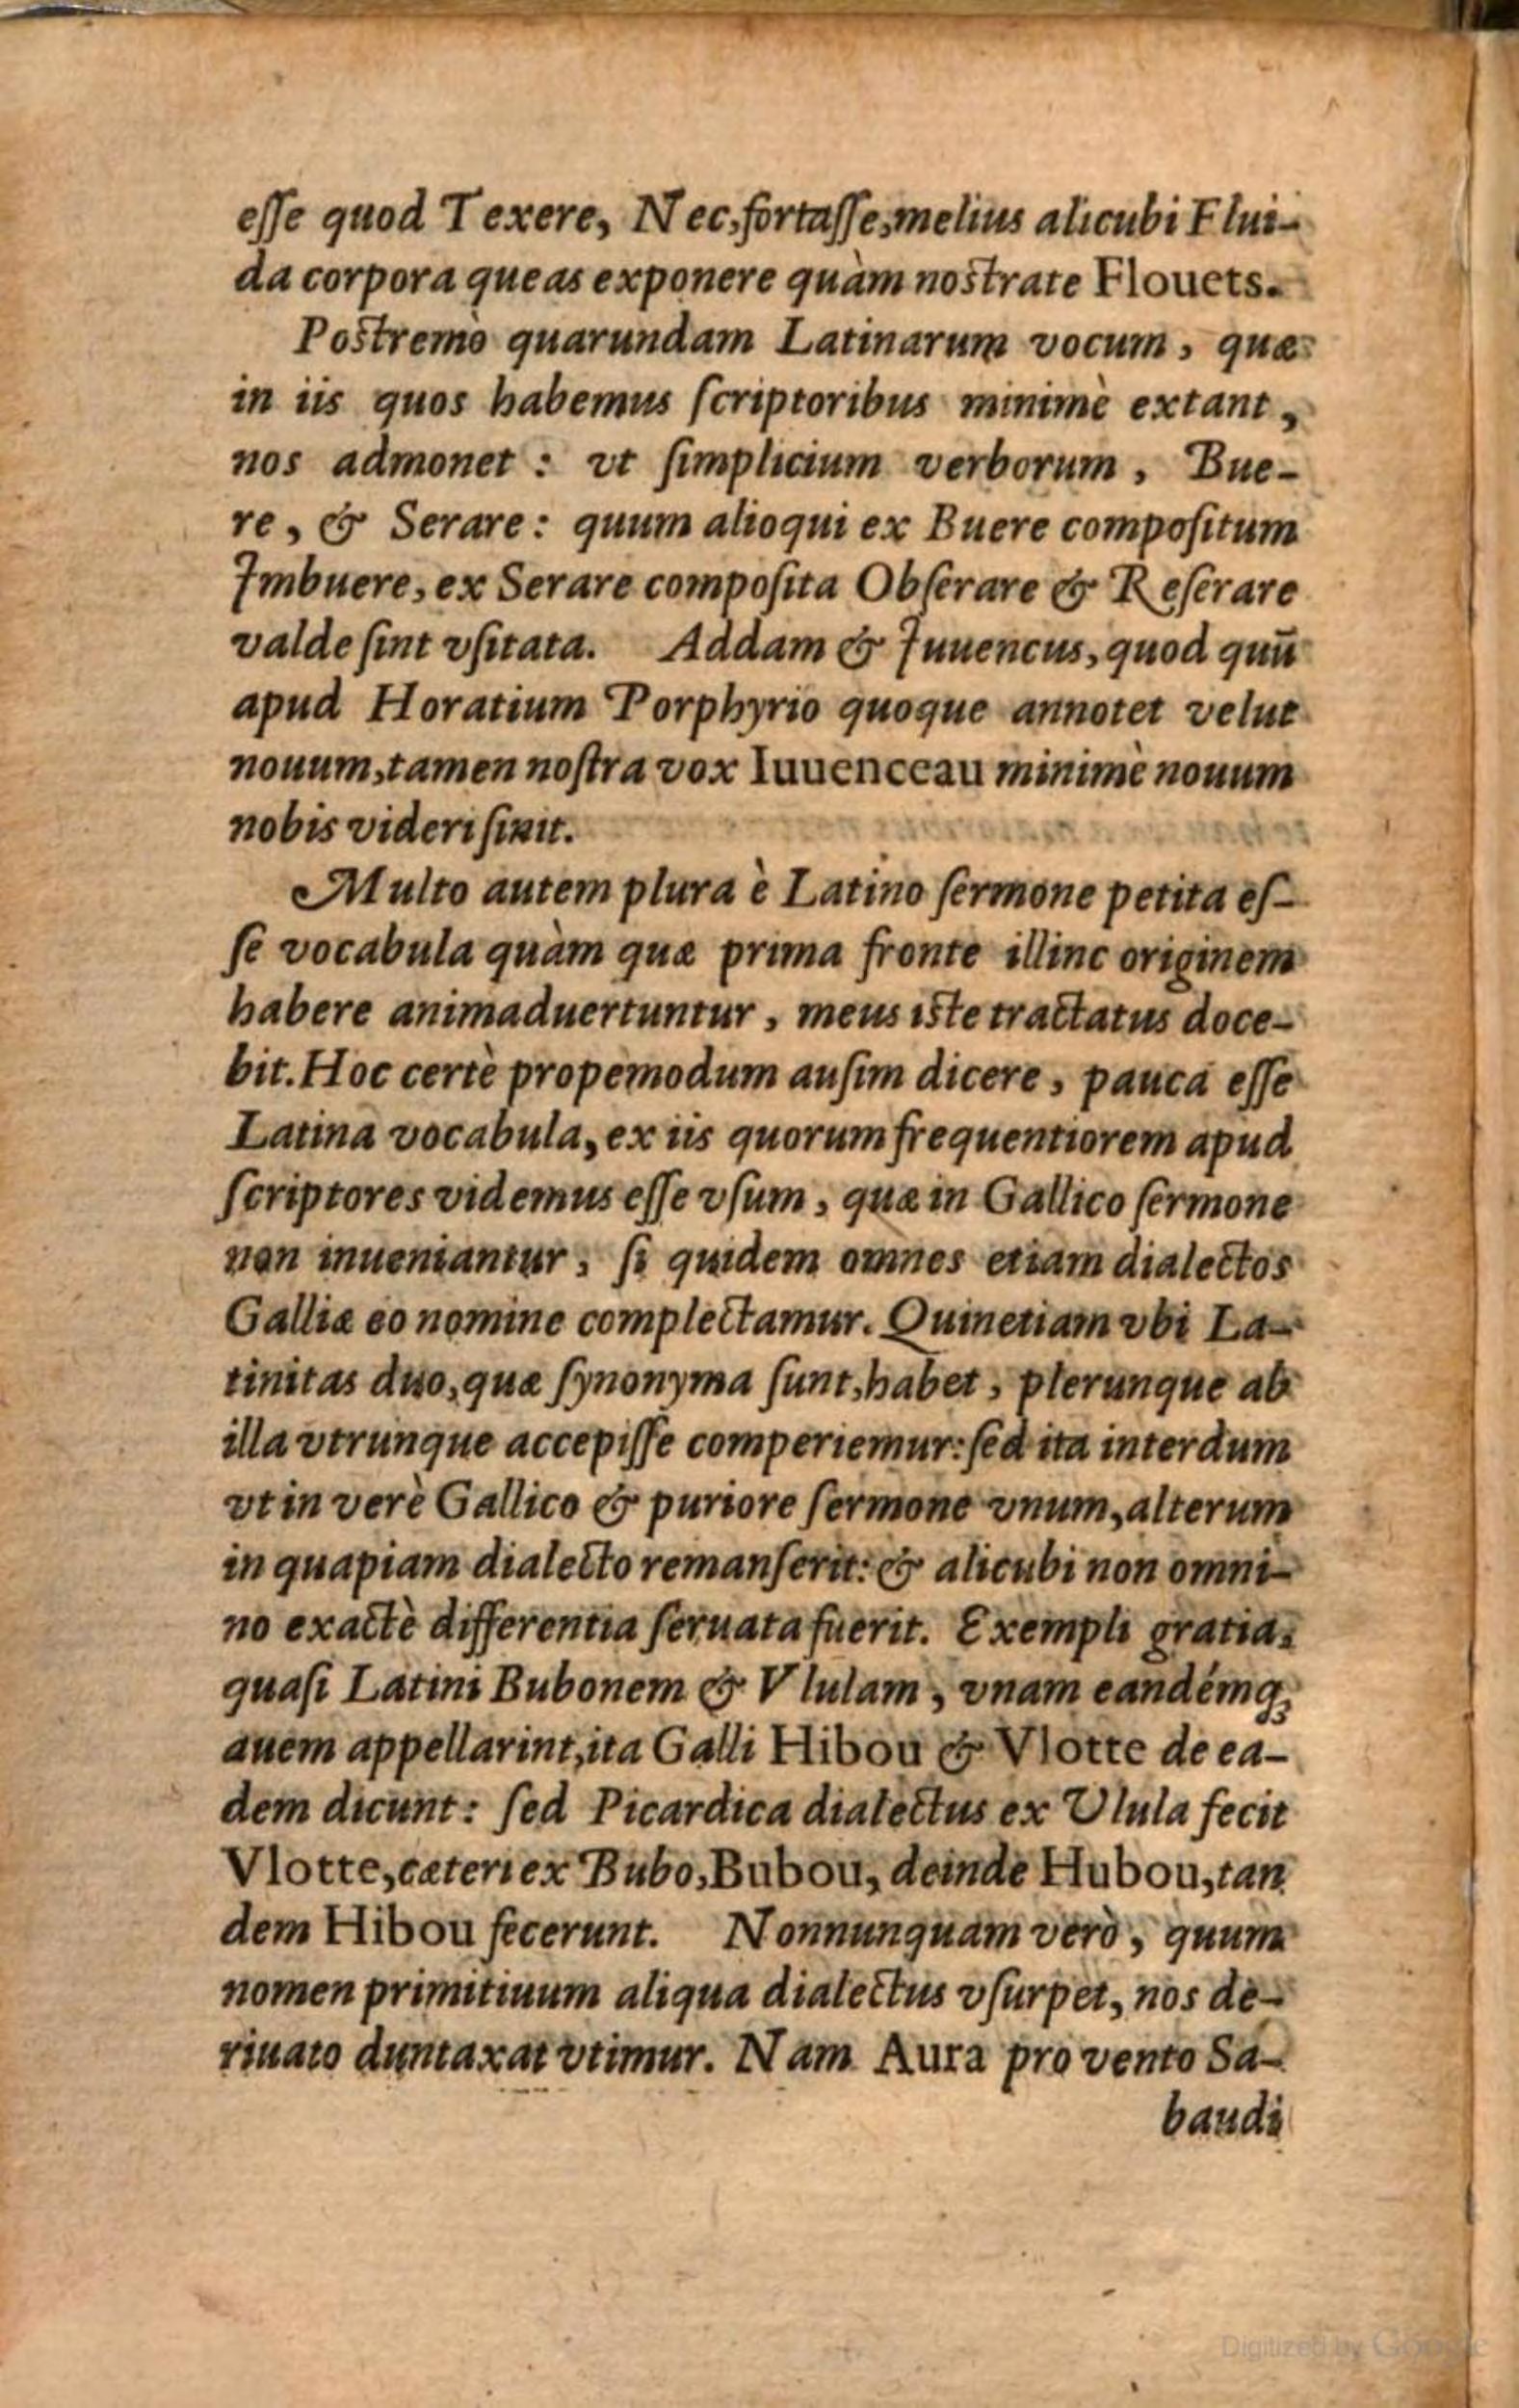 eſſe quod Texere, Nec, fortaſſe, melius alicubi Flui-
da corpora queas exponere quàm noſtrate Flouets.
Poſtremò quarundam Latinarum vocum, quæ
in iis quos habemus ſcriptoribus minimè extant,
nos admonet: vt ſimplicium verborum, Bue-
re, & Serare: quum alioqui ex Buere compoſitum
Imbuere, ex Serare compoſita Obſerare & Reſerare
valde ſint vſitata. Addam & Iuuencus, quod quū
apud Horatium Porphyrio quoque annotet velut
nouum, tamen noſtra vox Iuuenceau minimè nouum
nobis videri ſinit.
Multo autem plura è Latino ſermone petita eſ-
ſe vocabula quàm quæ prima fronte illinc originem
habere animaduertuntur, meus iſte tractatus doce-
bit. Hoc certè propemodum auſim dicere, pauca eſſe
Latina vocabula, ex iis quorum frequentiorem apud
ſcriptores videmus eſſe vſum, quæ in Gallico ſermone
non inueniantur, ſi quidem omnes etiam dialectos
Galliæ eo nomine complectamur. Quinetiam vbi La-
tinitas duo, quæ ſynonyma ſunt, habet, plerunque ab
illa vtrunque accepiſſe comperiemur: ſed ita interdum
vt in verè Gallico & puriore ſermone vnum, alterum
in quapiam dialecto remanſerit: & alicubi non omni-
no exactè differentia ſeruata fuerit. Exempli gratia,
quaſi Latini Bubonem & Vlulam, vnam eandémq;
auem appellarint, ita Galli Hibou & Vlotte de ea-
dem dicunt: ſed Picardica dialectus ex Vlula fecit
Vlotte, cæteri ex Bubo, Bubou, deinde Hubou, tan
dem Hibou fecerunt. Nonnunquam verò, quum
nomen primitiuum aliqua dialectus vſurpet, nos de-
riuato duntaxat vtimur. Nam Aura pro vento Sa-
baudi
Digitized by Google